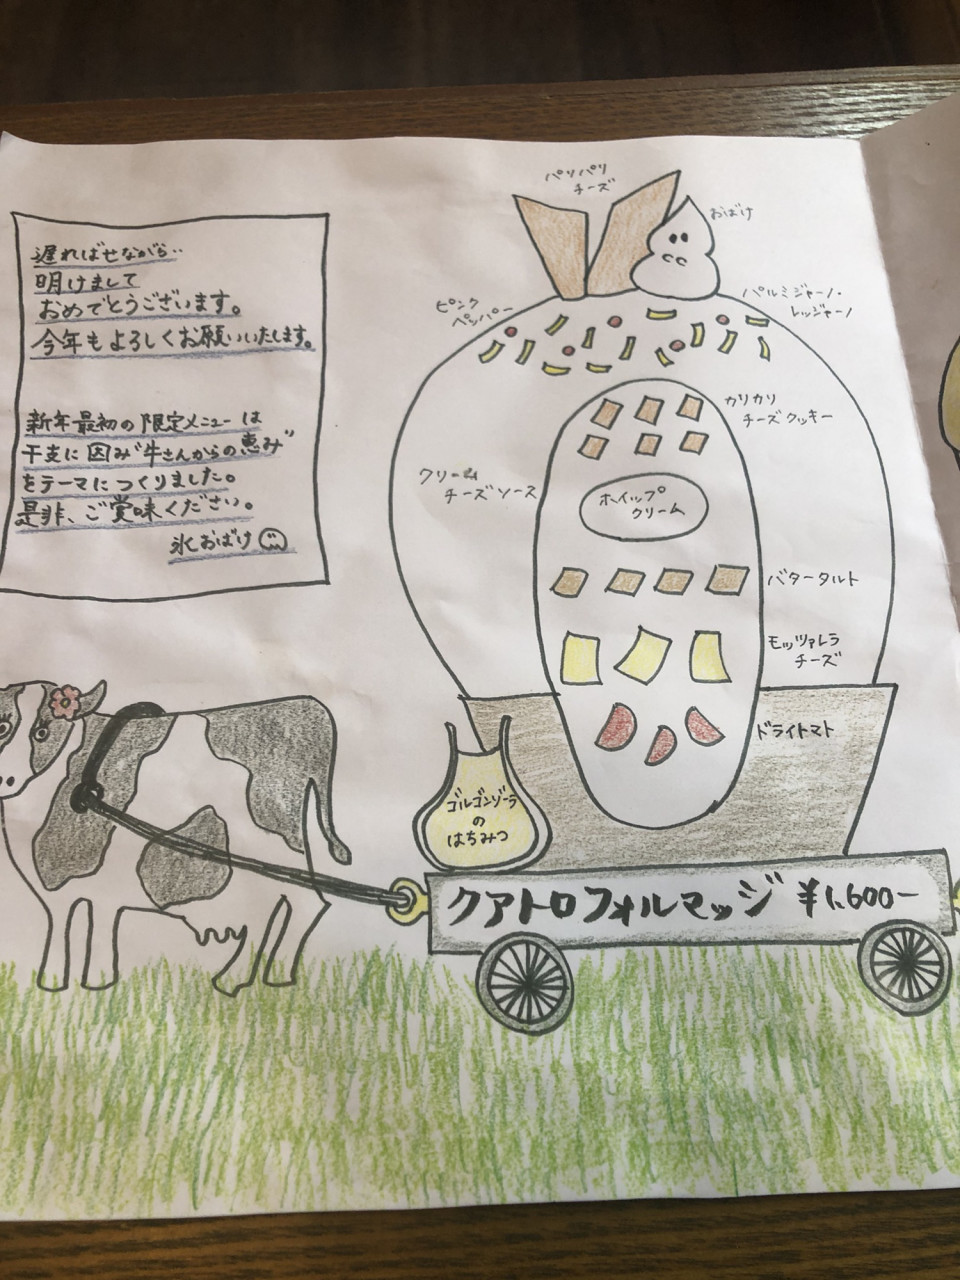 遅ればせながら…
明けまして
おめでとうございます。
今年もよろしくお願いいたします。
新年最初の限定メニューは
干支に因み"牛さんからの恵み"
をテーマにつくりました。
是非、ご賞味ください。
氷おばけ
パリパリ
チーズ
おばけ
ピンク
ペッパー
パルミジャーノ・
レッジャーノ
カリカリ
チーズクッキー
クリーム
チーズソース
ホイップ
クリーム
バタータルト
モッツァレラ
チーズ
ドライトマト
ゴルゴンゾーラ
の
はちみつ
クアトロフォルマッジ ¥1,600-